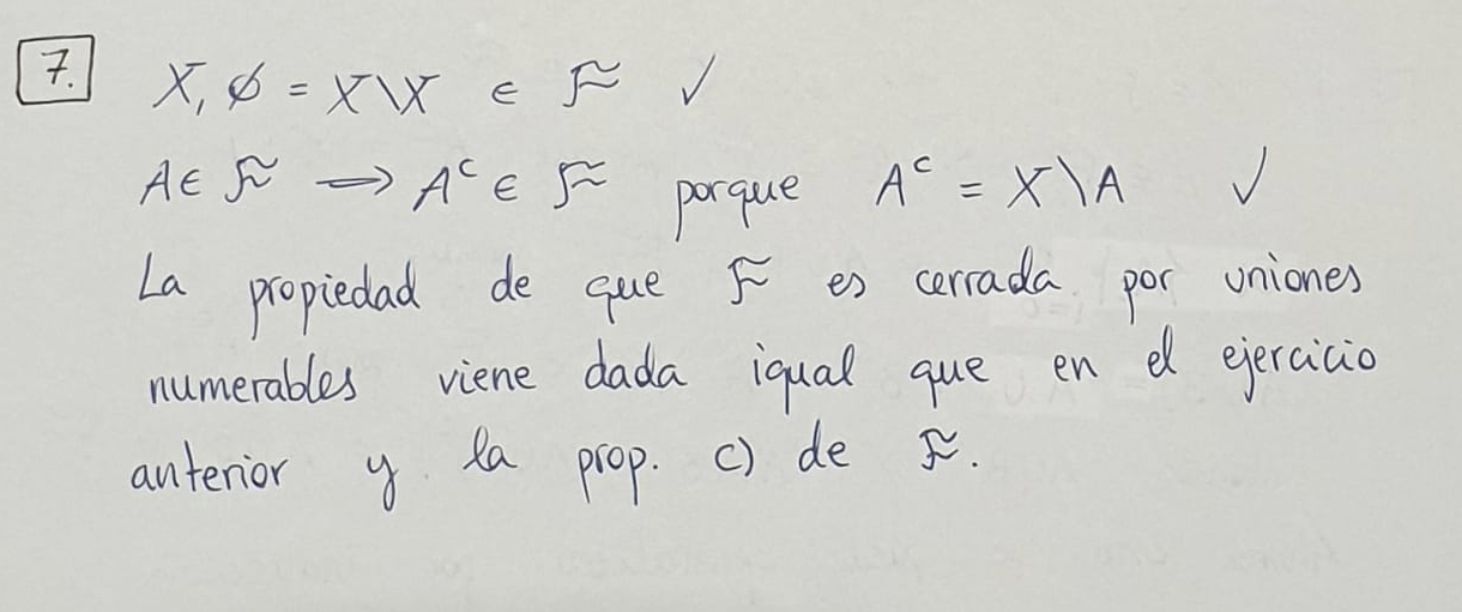 7. X, ∅ = X\X ∈ F ✓
A ∈ F → Aᶜ ∈ F porque Aᶜ = X\A ✓
La propiedad de que F es cerrada por uniones
numerables viene dada igual que en el ejercicio
anterior y la prop. c) de F.